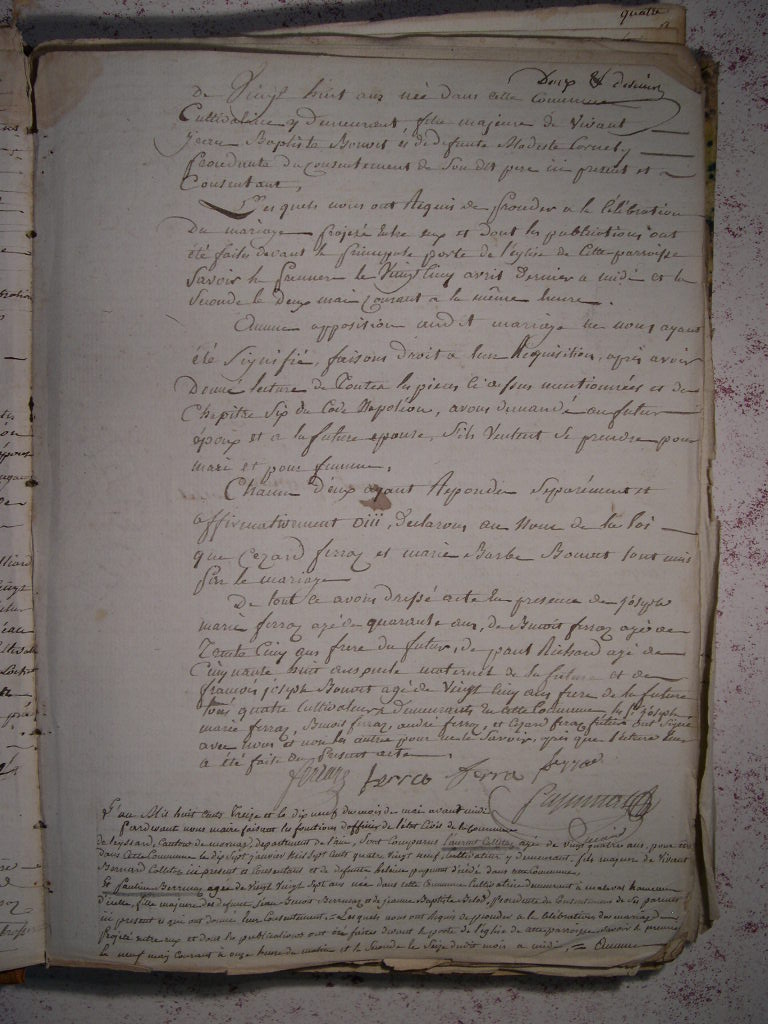 quatre
Deux
De Vingt huit ans née dans cette Commune
Cultivatrice y demeurant fille majeure de Vivant
Jean Baptiste Bouvet et de defunte Modeste Cornet
procedente du Consentement de Son dit pere ici present et
Consentant.
Lesquels nous ont Requis de proceder a la Célébration
Du mariage projeté entre eux et dont les publications ont
été faites devant la principale porte de l'église de Cette parroisse
Savoir la premiere le Vingt Cinq avril Dernier a midi et la
Seconde le Deux mai Courant a la même heure.
Aucune opposition audit mariage ne nous ayant
été Signifié, faisons droit a leur Requisition, après avoir
Donné lecture de Toutes les pieces ci dessus mentionnées et du
Chapitre Six du Code Napoléon, avons demandé au futur
epoux et a la future epouse, Sils Veulent Se prendre pour
mari et pour femme,
Chacun D'eux ayant Repondu Separément et
affirmativement oiii, Declarons au Nom de la loi
que Cezard ferraz et marie Barbe Bouvet Sont unis
par le mariage
De tout ce avons Dressé acte En presence de joseph
marie ferraz agé de quarante ans, de Benoit ferraz agé de
Trente Cinq ans frere du futur, de paul Richard agé de
Cinquante huit ans oncle maternel de la future et de
françois joseph Bouvet agé de Vingt Cinq ans frere de la future
Tous quatre Cultivateurs Demeurants En Cette Commune les Srs joseph
marie ferraz, Benoit ferraz, andré ferraz, et Cezard ferraz futur ont Signé
avec nous et non les autres pour ne le Savoir, après que lecture leur
a été faite du Present acte.
ferraz ferra ferra ferraz
L'an Mil huit Cents Treize et le dix neuf du mois de mai avant midi
Pardevant nous maire faisant les fonctions d'officier de l'etat Civil de la Commune
de leyssard, Canton de departement de l'ain, Sont Comparus laurent Colletaz agé de Vingt quatre ans,
dans Cette Commune le dix Sept janvier Mil Sept cents quatre Vingt neuf, Cultivateur y demeurant, fils majeur de Vivant
Bernard Colletaz ici present et Consentant et de defunte
Et Pauline Berruaz agée de Vingt Sept ans née dans cette Commune Cultivatrice demeurant a
fille majeure des defunt jean Benoit Berruaz et de jeanne Baptiste
ici present et qui ont donné leur Consentement, Lesquels nous ont Requis de proceder a la Célébration du mariage
projeté entre eux et dont les publications ont été faites devant la porte de l'église de cette parroisse Savoir la premiere
le neuf mai Courant a onze heures du matin et la Seconde le Seize dudit mois a midi, Aucune